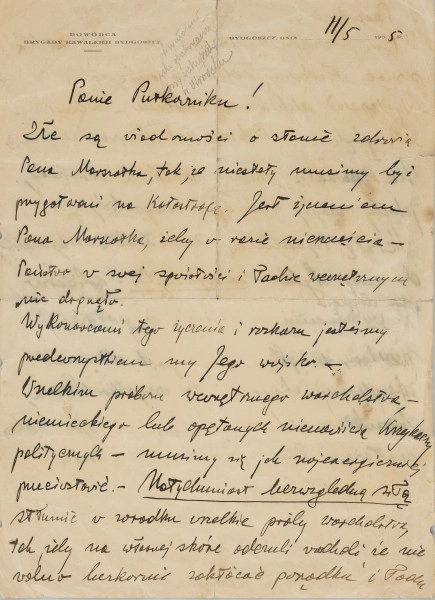 DOWÓDCA
BRYGADY KAWALERII BYDGOSZCZ
BYDGOSZCZ, DNIA 11/5 1935 r.
Panie Pułkowniku!
Złe są wiadomości o stanie zdrowia
Pana Marszałka, tak, że niestety musimy być
przygotowani na Katastrofę. Jest życzeniem
Pana Marszałka, żeby w razie nieszczęścia –
Państwo w swej spoistości i ładzie wewnętrznym
nie drgnęło.
Wykonawcami tego życzenia i rozkazu jesteśmy
przedewszystkiem my Jego wojsko. –
Wszelkim próbom wewnętrznego warcholstwa –
niemieckiego lub opętanych nienawiścią
politycznych – musimy się jak najenergiczniej
przeciwstawić. – Natychmiast bezwzględną siłą
stłumić w zarodku wszelkie próby warcholstwa,
tak żeby na własnej skórze odczuli że nie
wolno bezkarnie zakłócać porządku i ładu